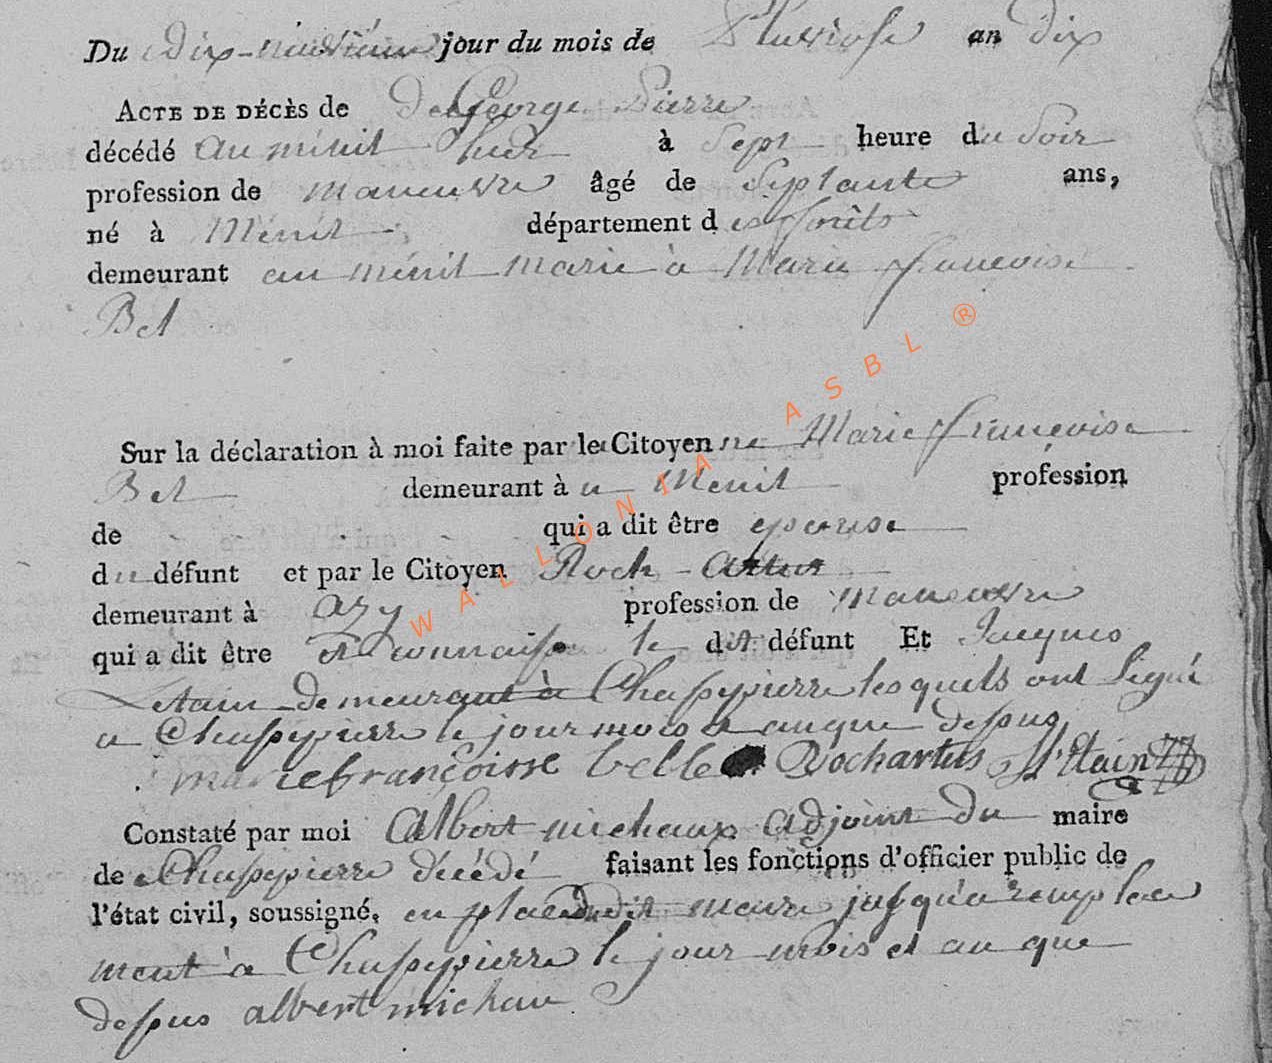 Du dix-neuvième jour du mois de Pluviose an dix
ACTE DE DÉCÈS de George Pierre
décédé au ménil hier à Sept heure du Soir
profession de maneuvre âgé de Septante ans,
né à Ménil département des forêts
demeurant au ménil marié à Marie françoise
Bel
Sur la déclaration à moi faite par le Citoyenne Marie françoise
Bel demeurant à u Menil profession
de qui a dit être epouse
du défunt et par le Citoyen Roch Artus
demeurant à azy profession de Maneuvre
qui a dit être Connaisse le dit défunt Et Jacques
Letain Demeurant à Chassepierre lesquels ont Signé
a Chassepierre le jour mois et an que dessus
marie françoisse belle Rochartus Letain
Constaté par moi Albert michaux adjoint du maire
de Chassepierre décédé faisant les fonctions d'officier public de
l'état civil, soussigné, en place dudit maire jusqu'a remplace
ment à Chassepierre le jour mois et an que
dessus albert michau
WALLONIA ASBL ®